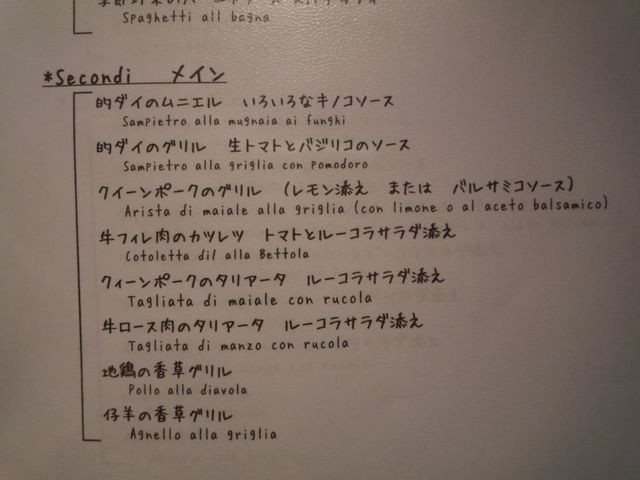 Spaghetti all bagna
*Secondi メイン
的ダイのムニエル いろいろなキノコソース
Sampietro alla mugnaia ai funghi
的ダイのグリル 生トマトとバジリコのソース
Sampietro alla griglia con pomodoro
クイーンポークのグリル （レモン添え または バルサミコソース）
Arista di maiale alla griglia (con limone o al aceto balsamico)
牛フィレ肉のカツレツ トマトとルーコラサラダ添え
Cotoletta di/ alla Bettola
クィーンポークのタリアータ ルーコラサラダ添え
Tagliata di maiale con rucola
牛ロース肉のタリアータ ルーコラサラダ添え
Tagliata di manzo con rucola
地鶏の香草グリル
Pollo alla diavola
仔羊の香草グリル
Agnello alla griglia